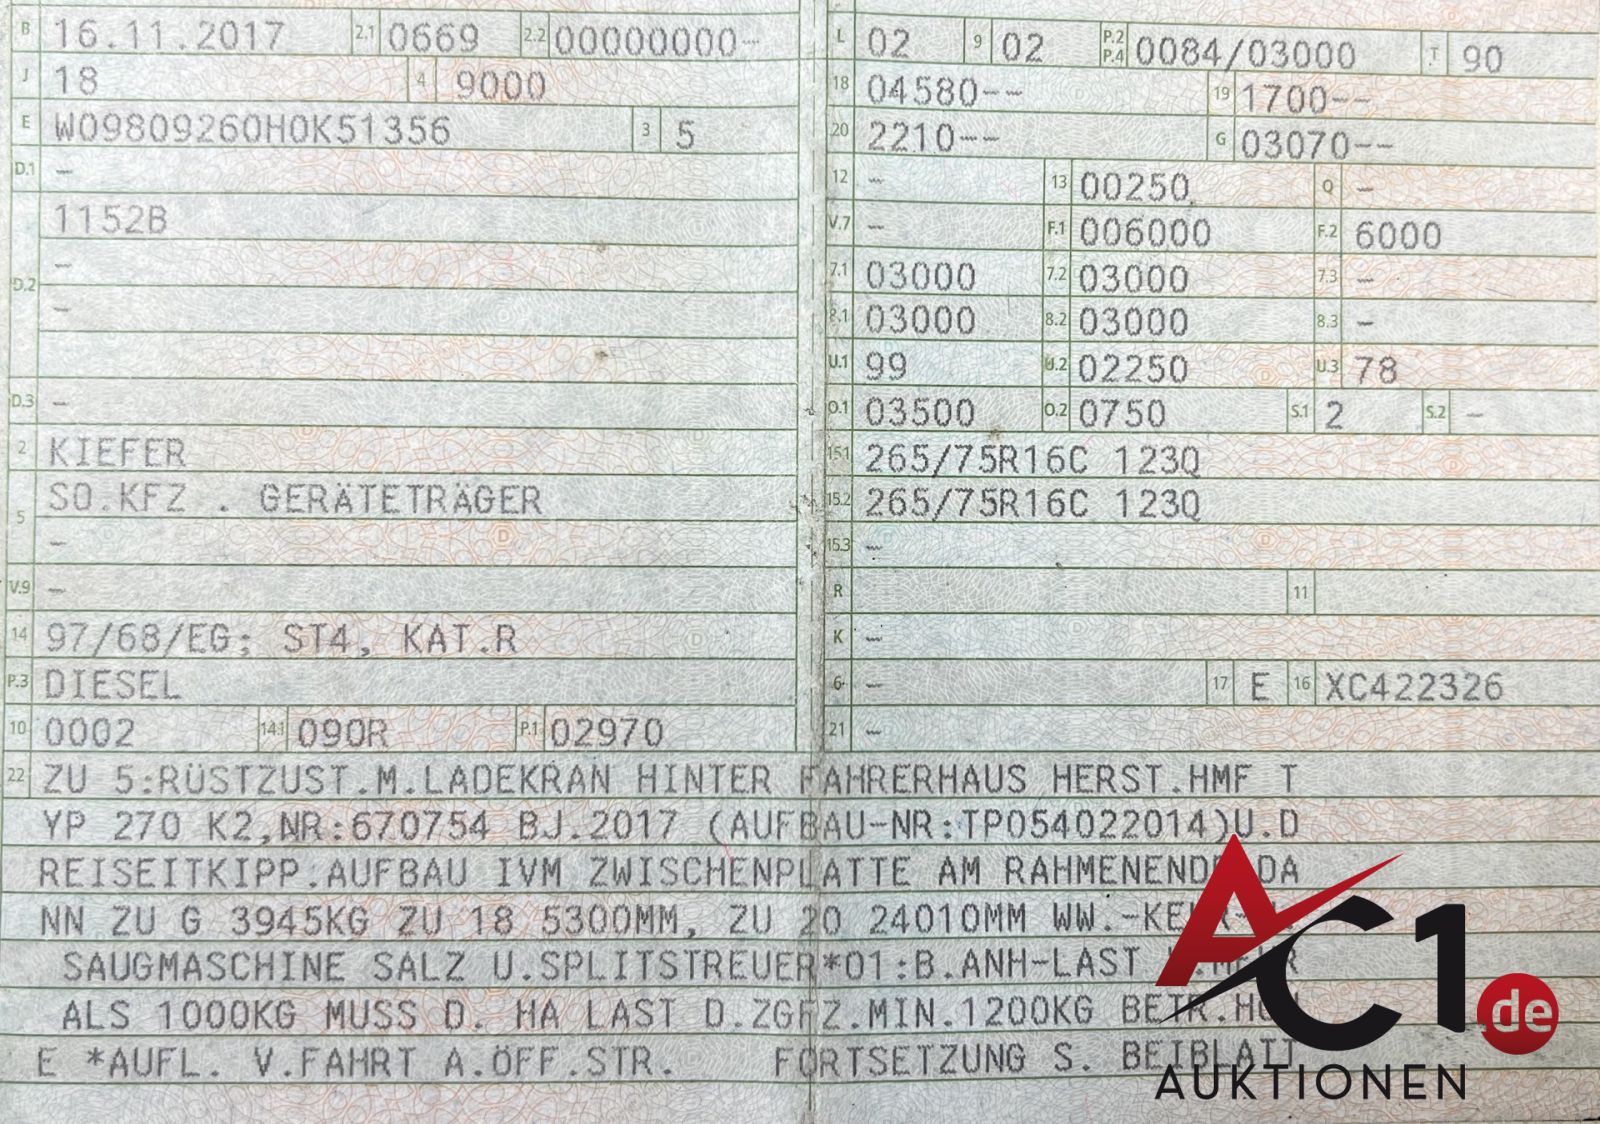 B 16.11.2017 2.1 0669 2.2 00000000-
J 18 4 9000
E W09809260H0K51356 3 5
D.1 -
1152B
-
D.2
-
D.3 -
2 KIEFER
SO.KFZ . GERÄTETRÄGER
5
-
V.9 -
14 97/68/EG; ST4, KAT.R
P.3 DIESEL
10 0002 14.1 090R P.1 02970
L 02 9 02 P.2 P.4 0084/03000 T 90
18 04580-- 19 1700--
20 2210-- G 03070--
12 - 13 00250 Q -
V.7 - F.1 006000 F.2 6000
7.1 03000 7.2 03000 7.3 -
8.1 03000 8.2 03000 8.3 -
U.1 99 U.2 02250 U.3 78
O.1 03500 O.2 0750 S.1 2 S.2 -
15.1 265/75R16C 123Q
15.2 265/75R16C 123Q
15.3 -
R 11
K -
6 - 17 E 16 XC422326
21 -
22 ZU 5:RÜSTZUST.M.LADEKRAN HINTER FAHRERHAUS HERST.HMF T
YP 270 K2,NR:670754 BJ.2017 (AUFBAU-NR:TP054022014)U.D
REISEITKIPP.AUFBAU IVM ZWISCHENPLATTE AM RAHMENENDE DA
NN ZU G 3945KG ZU 18 5300MM, ZU 20 24010MM WW.
SAUGMASCHINE SALZ U.SPLITSTREUER*01:B.ANH-LAST
ALS 1000KG MUSS D. HA LAST D.ZGFZ.MIN.1200KG
E *AUFL. V.FAHRT A.ÖFF.STR. FORTSETZUNG S. BEIBLATT
AC1.de
AUKTIONEN